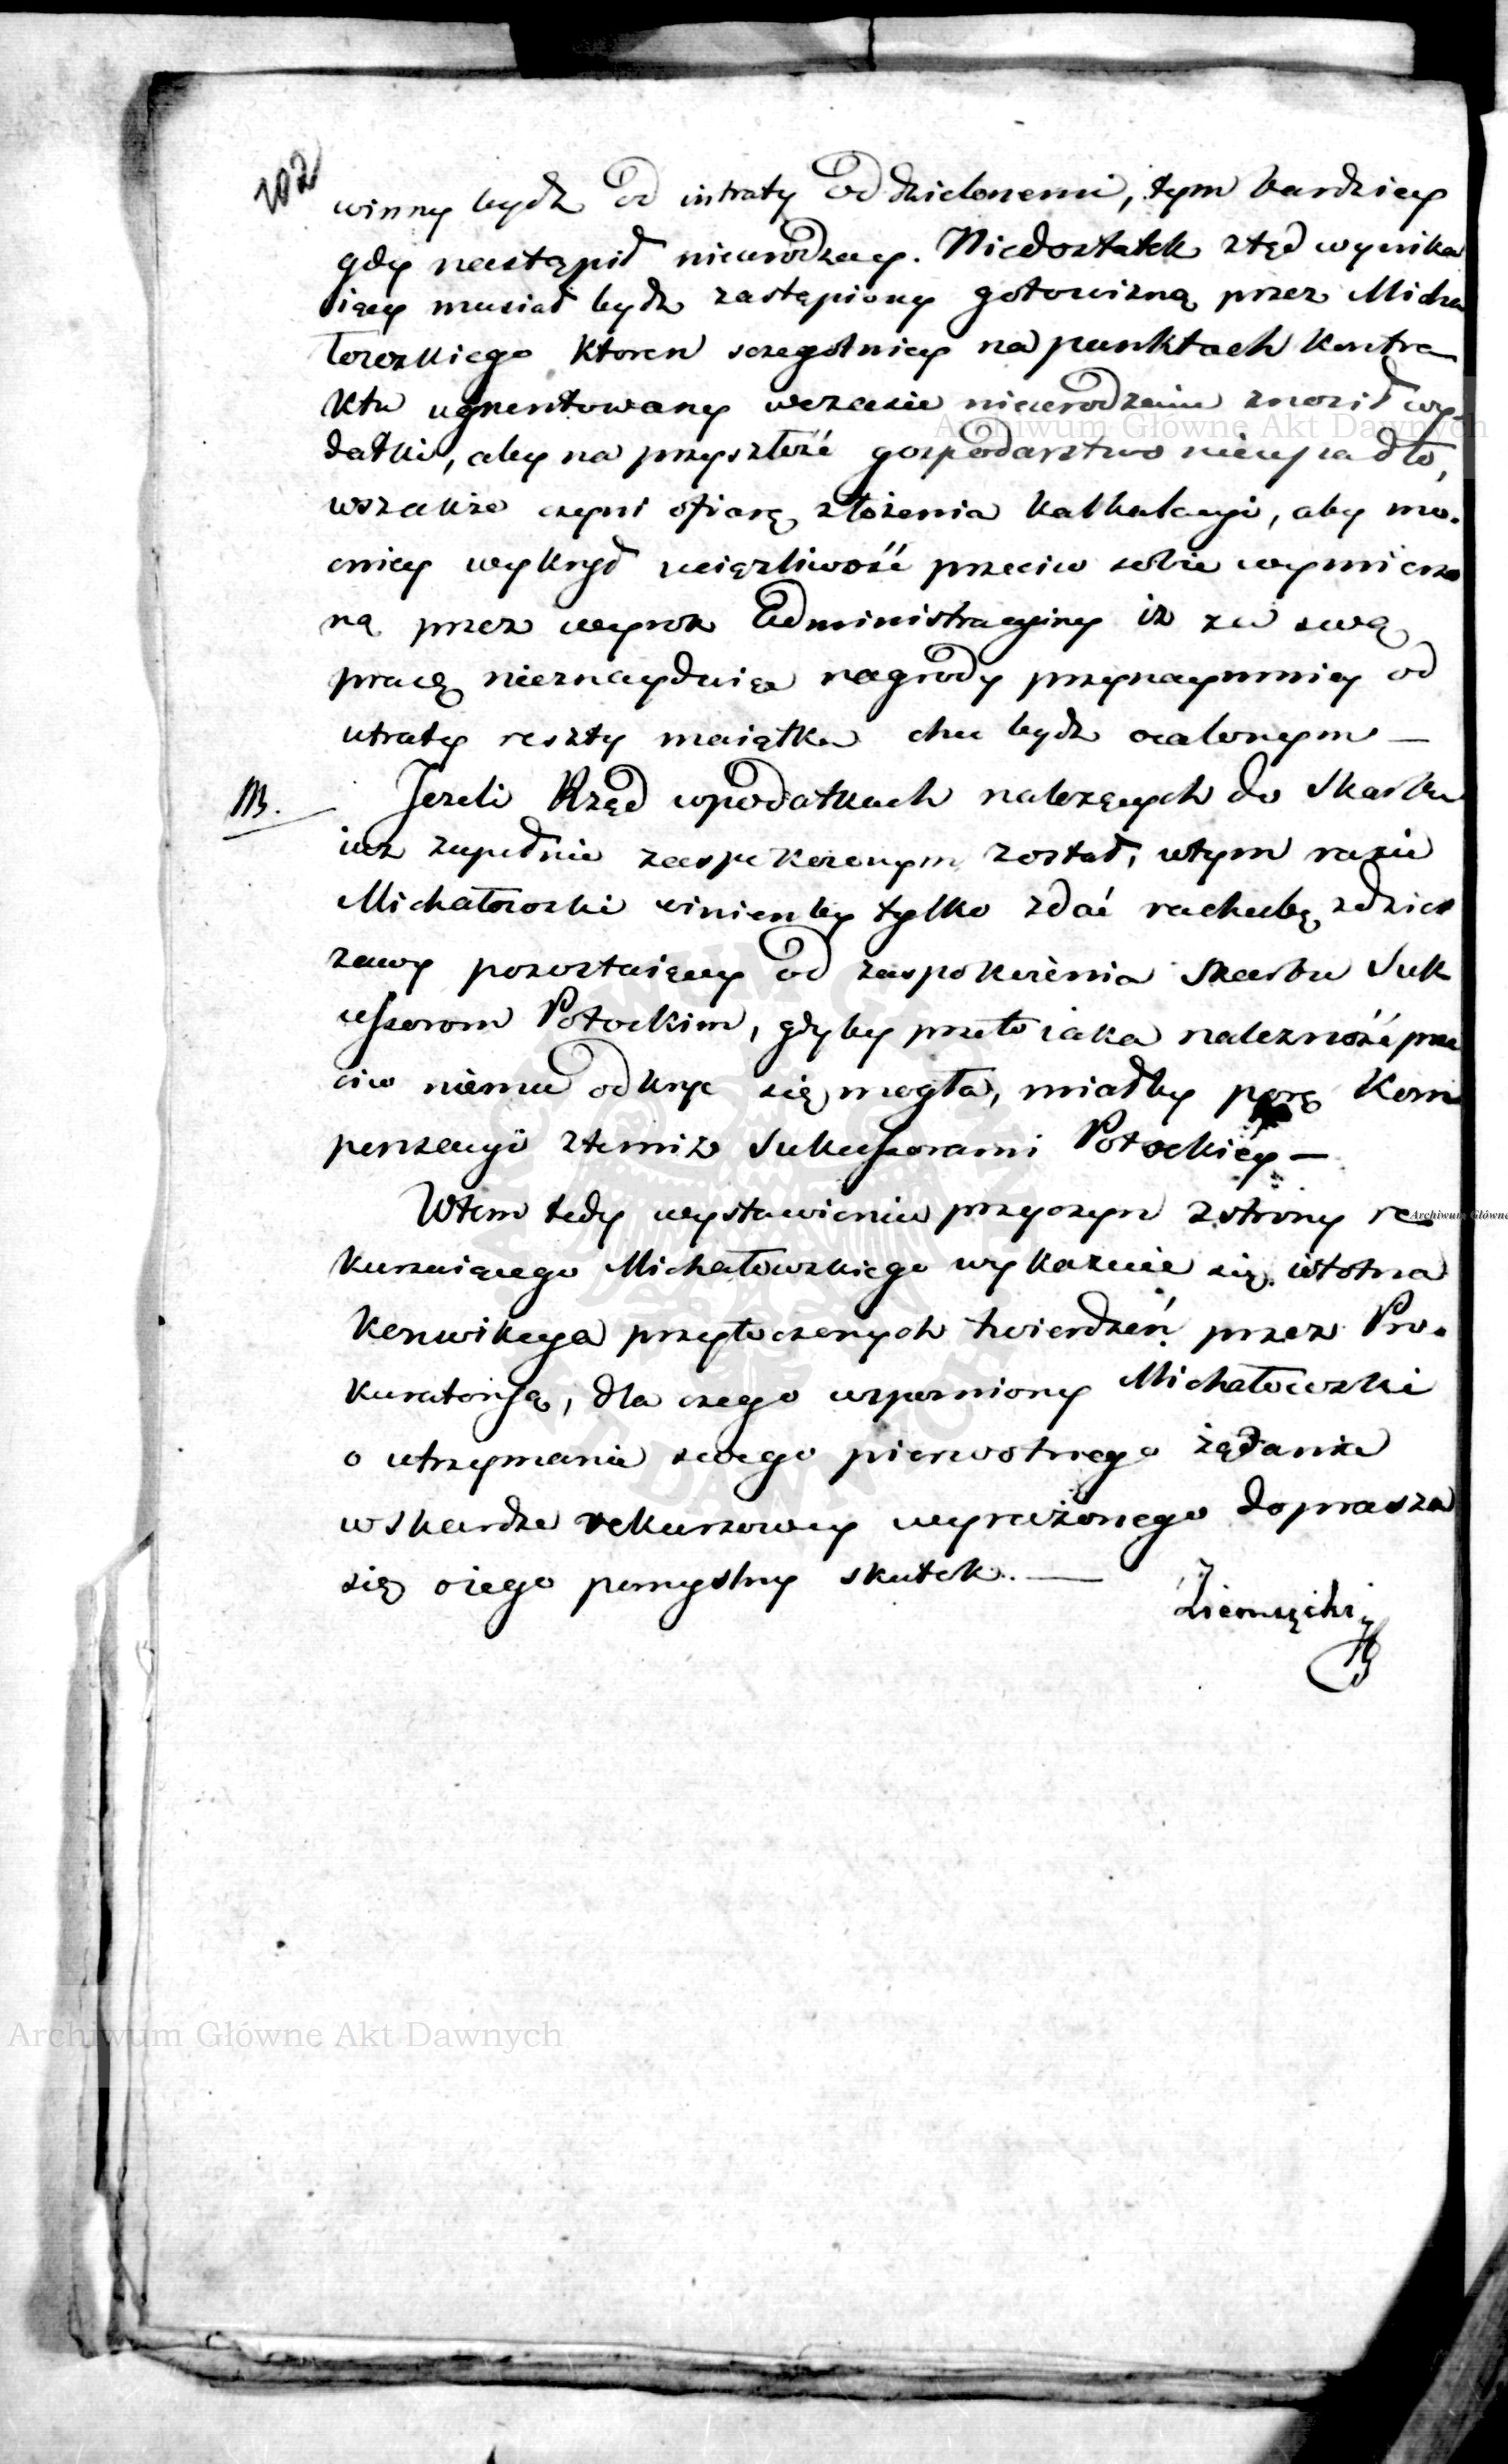 102
winny bydź od intraty oddzielonemi, tym bardziey
gdy nastąpił nieurodzay. Niedostatek ztąd wynika
iący musiał bydź zastąpiony gotowizną przez Micha
łowskiego ktoren szczegolniey na punktach kontra
ktu ugruntowany wczasie nieurodzaiu znosił wy-
datki, aby na przyszłość gospodarstwo nieupadło,
wszakże czyni ofiarę złożenia kalkulacyi, aby mo-
cniey wykrył uciążliwość przeciw sobie wymierzo
ną przez wyrok Administracyiny iż za swą
pracę nieznayduiąc nagrody przynaymniey od
utraty reszty maiątku chce bydź ocalonym —
III. Jezeli Rząd wpodatkach nalezących do Skarbu
iuz zupełnie zaspokoionym został, wtym razie
Michałowski winienby tylko zdać rachubę zdzier
zawy pozostaiącey od zaspokoienia Skarbu Suk
cessorom Potockim, gdyby przeto iaka nalezność prze
ciw niemu odkryc się mogła, miałby porę Kom
penzacyi ztemiz Sukcessorami Potockiey —
Wtem tedy wystawieniu przyczyn zstrony re-
kuruiącego Michałowskiego wykazuie się istotna
konwikcya przytoczonych twierdzeń przez Pro-
kuratoryą, dla czego wspomniony Michałowski
o utrzymanie swego pierwotnego żądania
wskardze rekursowey wyrażonego doprasza
się oiego pomyslny skutek. —
Ziemięcki
Archiwum Główne Akt Dawnych
Archiwum Główne
Archiwum Główne Akt Dawnych